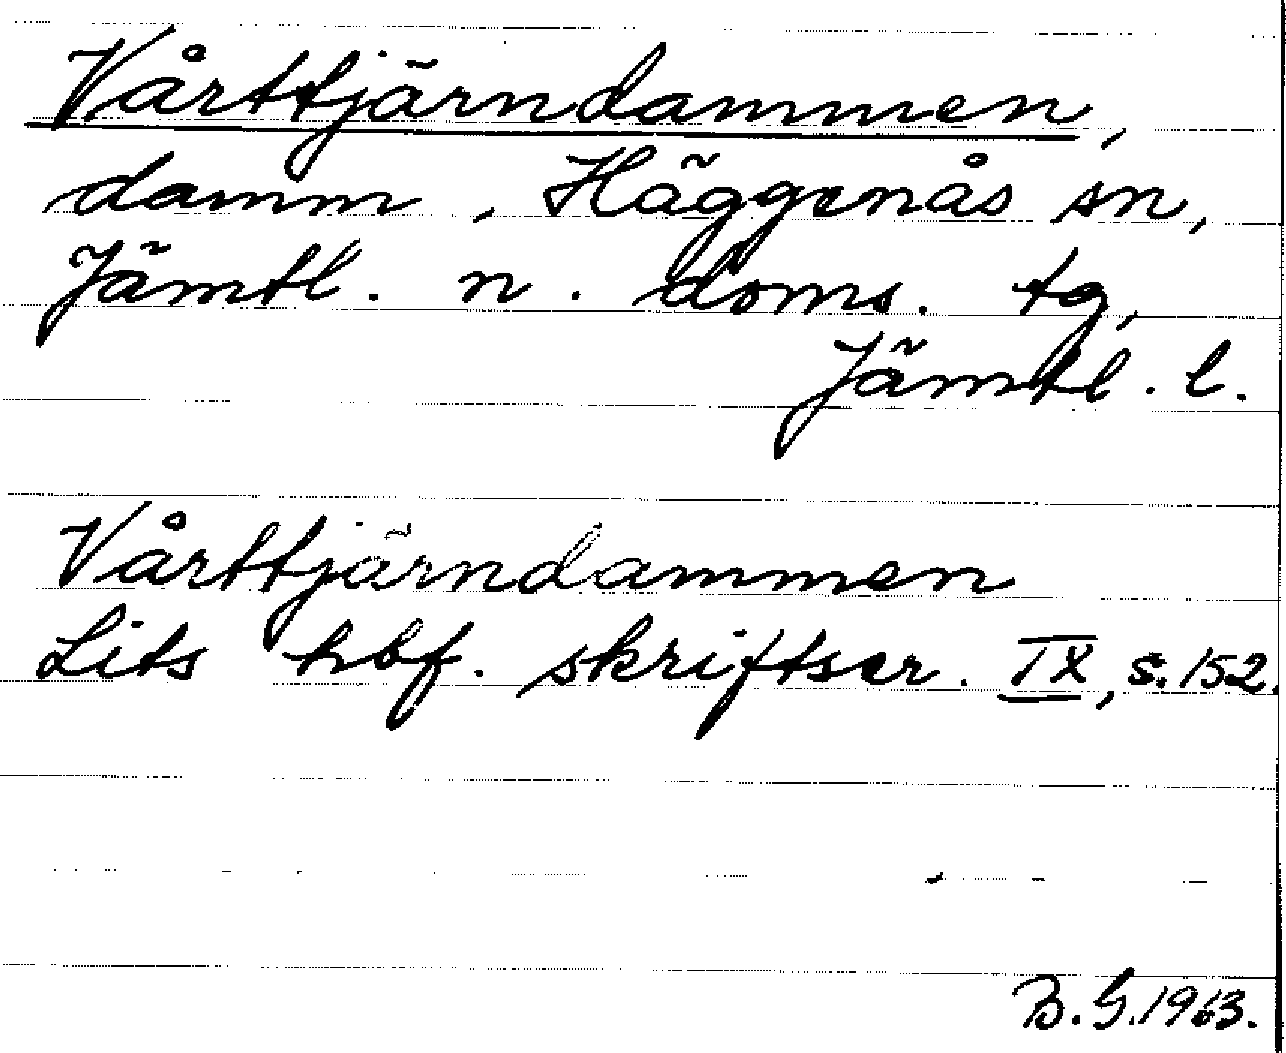 Vårttjärndammen,
damm, Häggenås sn,
Jämtl. n. doms. tg,
Jämtl. l.
Vårttjärndammen
Lits hbf. skriftser. IX, s. 152.
B. G. 1963.